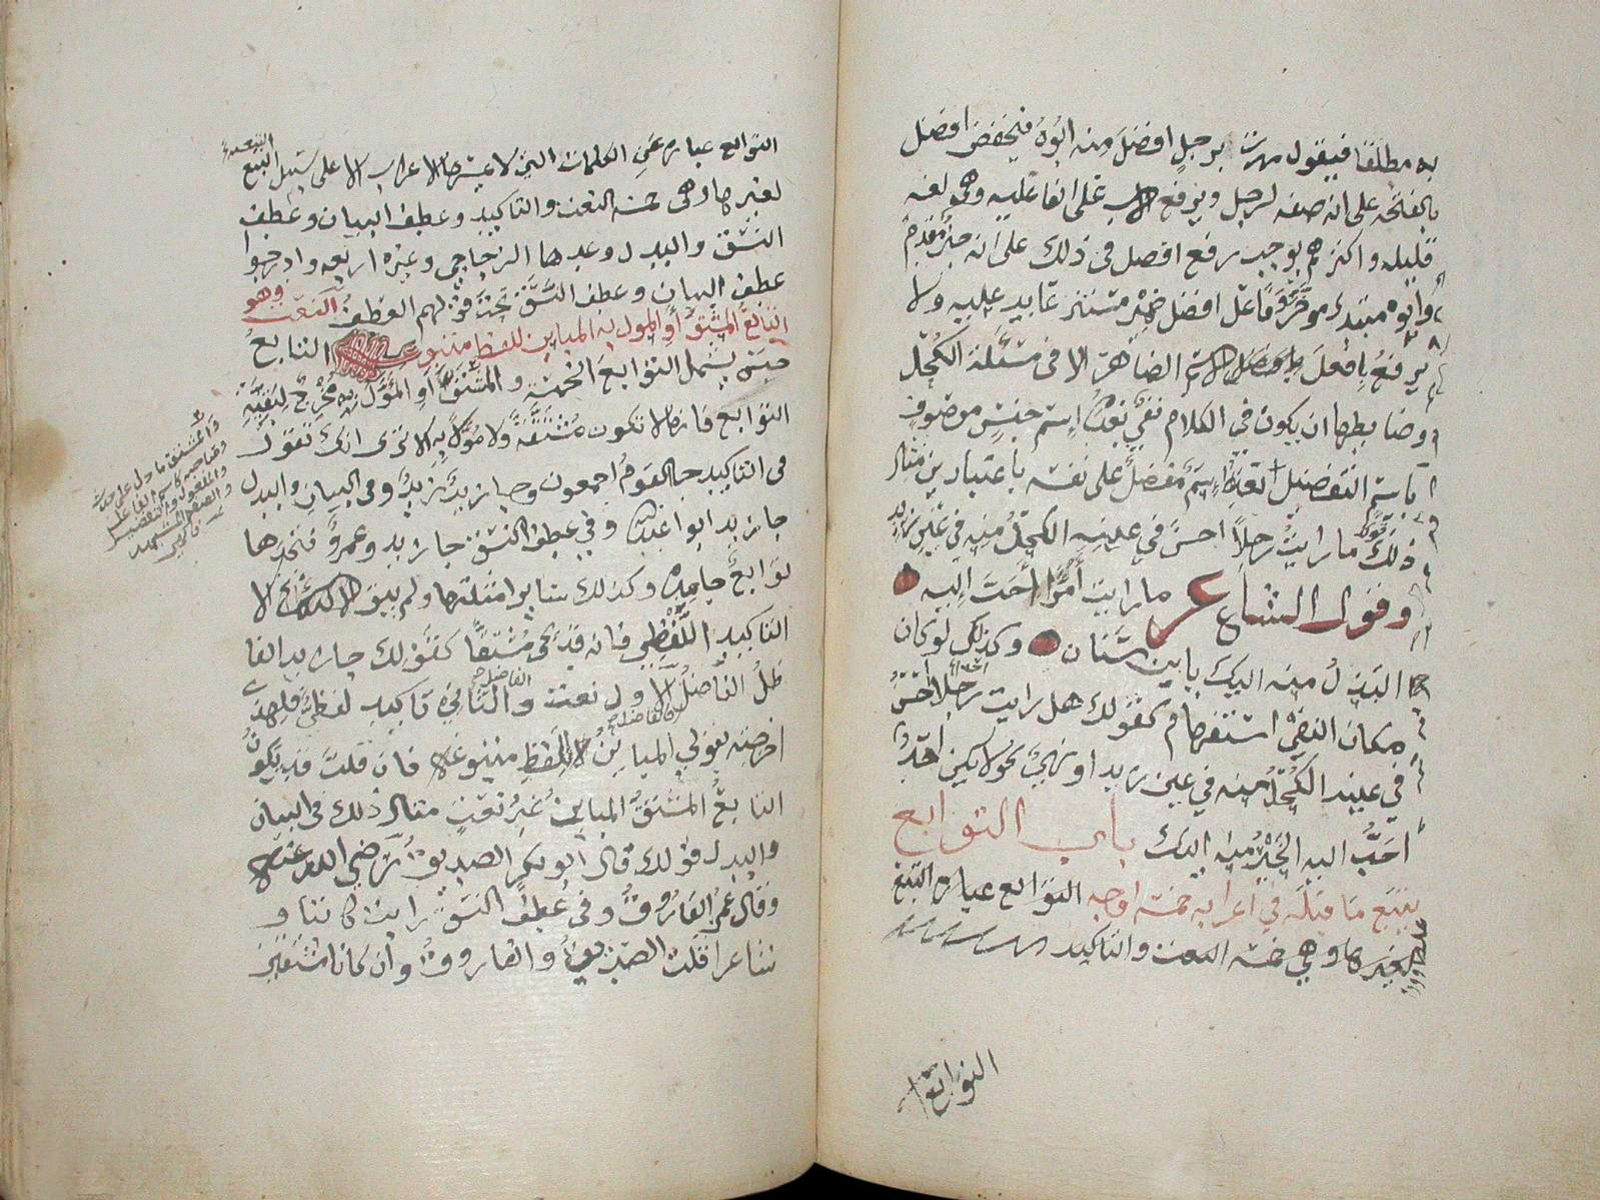 به مطلقا فيقول مررت برجل افضل منه ابوه فيخفض افضل
بالفتحه على انه صفه لرجل ويرفع الاب على الفاعليه وهي لغه
قليله واكثرهم يوجب رفع افضل في ذلك على انه خبر مقدم
وابوه مبتدء موخر وفاعل افضل ضمير مستتر عايد عليه ولا
يرفع بافعل الاسم الضاهر الا في مسئلة الكحل
وضابطها ان يكون في الكلام نفي بعده اسم جنس موصوف
باسم التفضيل بعده اسم مفضل على نفسه باعتبارين مثال
ذلك قولك ما رايت رجلا احسن في عينه الكحل منه في عين زيد
وقول الشاعر ما رايت امرا احب اليه
البذل منه اليك يا ابن سنان وكذلك لو كان
مكان النفي استفهام كقولك هل رايت رجلا احسن
في عينه الكحل منه في عين زيد او نهي نحو لا يكن احد
احب اليه الخير منه اليك باب التوابع
يتبع ما قبله في اعرابه خمسة اوجه التوابع عبارة
لغيرها وهي خمسة النعت والتاكيد
التوابع
التوابع عباره عن الكلمات التي لا يمسها الاعراب الا على سبيل التبع
لغيرها وهي خمسة النعت والتاكيد وعطف البيان وعطف
النسق والبدل وعدها الزجاجي وغيره اربعه وادرجوا
عطف البيان وعطف النسق تحت قولهم العطف النعت وهو
التابع المشتق او المول به المباين للفظ متبوعه التابع
جنس يشمل التوابع الخمسة و المشتق او المؤول به مخرج لبقية
التوابع فانها لا تكون مشتقة ولا مؤولا به الا ترى انك تقول
في التاكيد جا القوم اجمعون وجا زيد زيد وفي البيان والبدل
جا زيد ابو عبدالله وفي عطف النسق جا زيد وعمرو فتجدها
توابع جامدة وكذلك ساير امثلتها ولم يبق الا
التاكيد اللفظي فانه قد يجي مشتقا كقولك جا زيد الفا
ضل الفاضل الاول نعت والثاني تاكيد لفظي فلهذا
اخرجته بقولي المباين للفظ متبوعه فان قلت قد يكون
التابع المشتق المباين غير نعت مثال ذلك في البيان
والبدل قولك قال ابو بكر الصديق رضي الله عنه
وقال عمر الفاروق وفي عطف النسق رايت كاتبا و
شاعرا قلت الصديق والفاروق وان كانا مشتقين
والمشتق ما دل على حدث
وصاحبه كاسم الفاعل
والمفعول والتفضيل
والصفة المشبهه